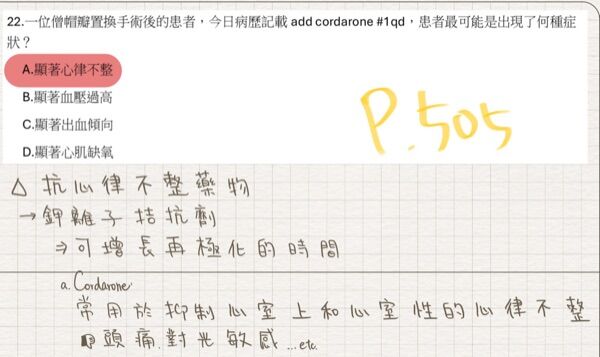 22.一位僧帽瓣置換手術後的患者，今日病歷記載 add cordarone #1qd，患者最可能是出現了何種症
狀？
A.顯著心律不整
B.顯著血壓過高
C.顯著出血傾向
D.顯著心肌缺氧
P.505
△ 抗心律不整藥物
→ 鉀離子拮抗劑
⇒ 可增長再極化的時間
a. Cordarone:
常用於抑制心室上和心室性的心律不整
頭痛.對光敏感...etc.